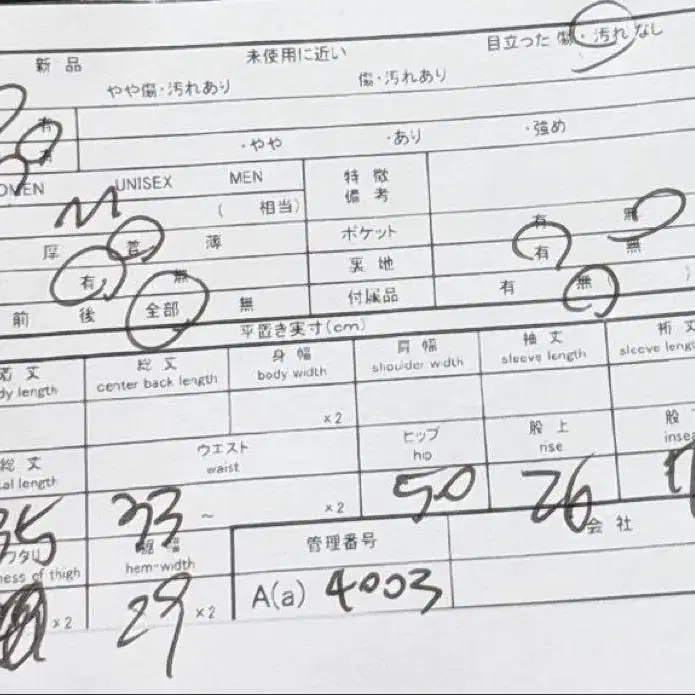 新品 未使用に近い 目立った傷・汚れなし
やや傷・汚れあり 傷・汚れあり
有
有 ・やや ・あり ・強め
OMEN UNISEX MEN 特徴
備考
M ( 相当)
厚 普 薄 ポケット 有 無
有 無 裏地 有 無
前 後 全部 無 付属品 有 無 ( )
平置き実寸(cm)
着丈 総丈 身幅 肩幅 袖丈 裄丈
dy length center back length body width shoulder width sleeve length sleeve leng
×2
総丈 ウエスト ヒップ 股上 股
al length waist hip rise insea
35 33 ~ ×2 50 26
ワタリ 裾幅 管理番号 会社
ness of thigh hem-width
×2 29 ×2 A(a) 4003